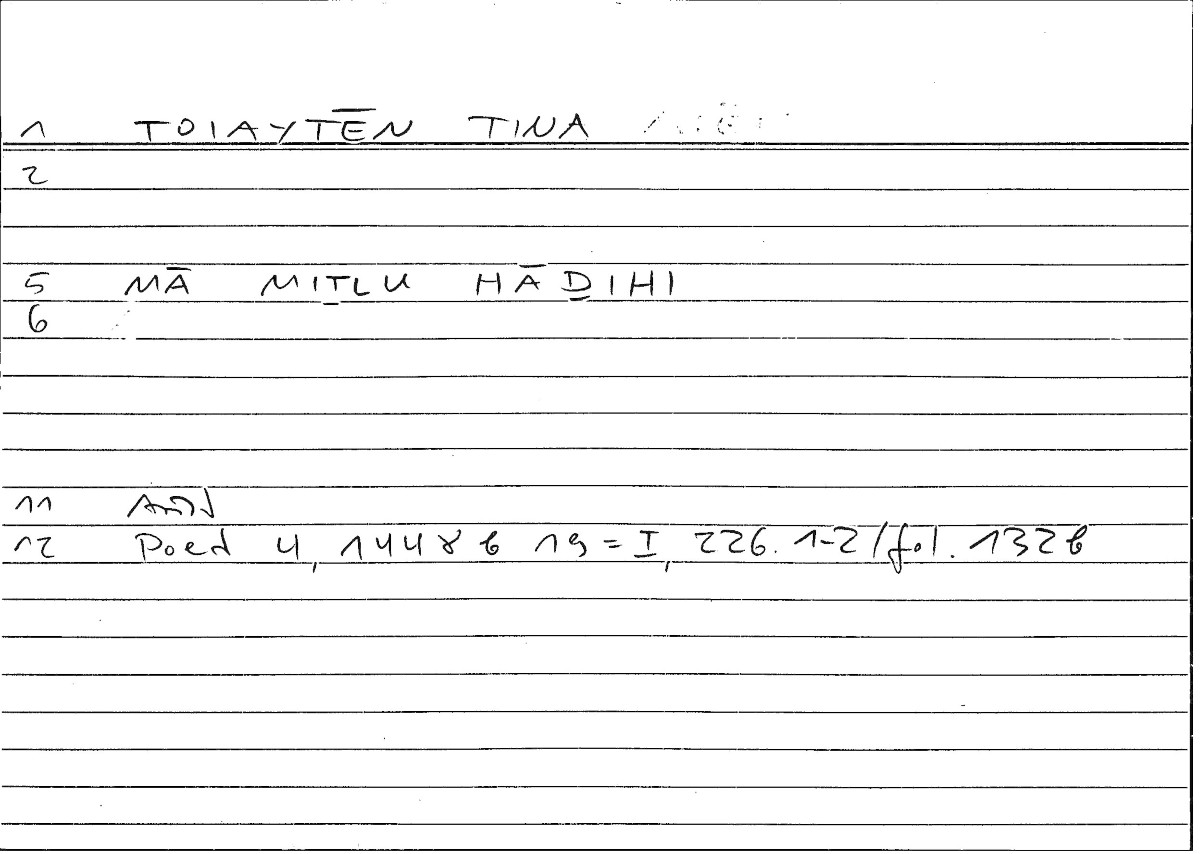 1 TOIAYTĒN TINA
2
5 MĀ MIṮLU HĀḎIHI
6
11
12 Poed 4, 1448 b 19 = I, 226. 1-2 / fol. 132 b